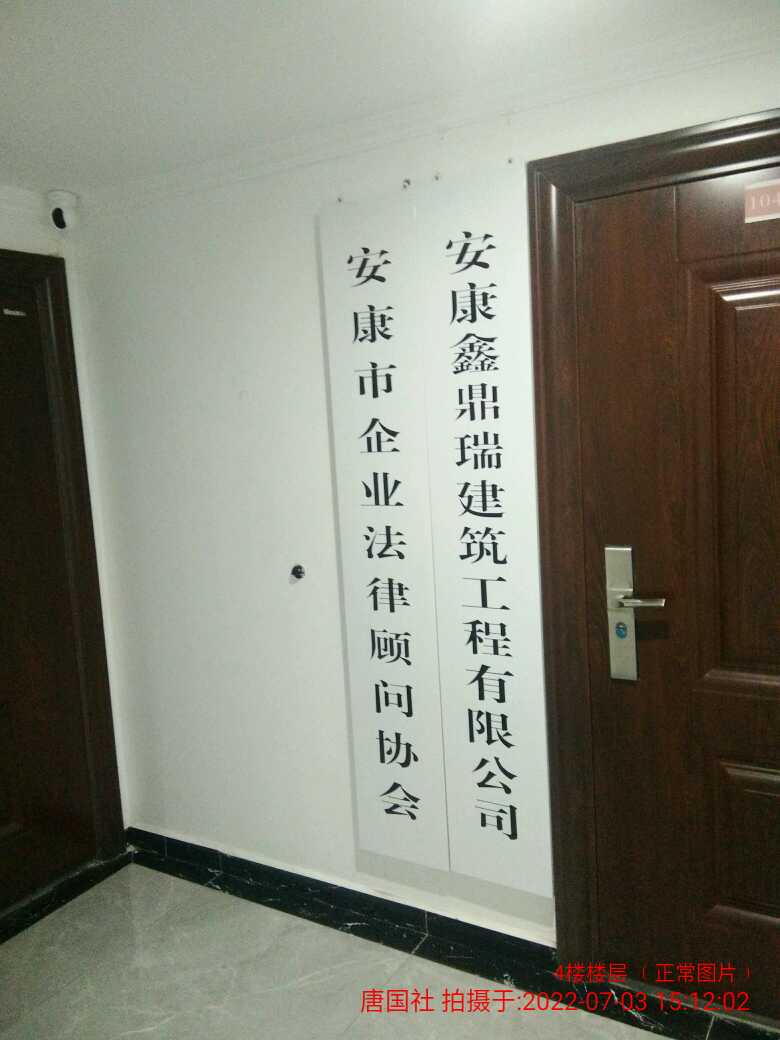 安康鑫鼎瑞建筑工程有限公司
安康市企业法律顾问协会
104
4楼楼层（正常图片）
唐国社 拍摄于:2022-07-03 15:12:02